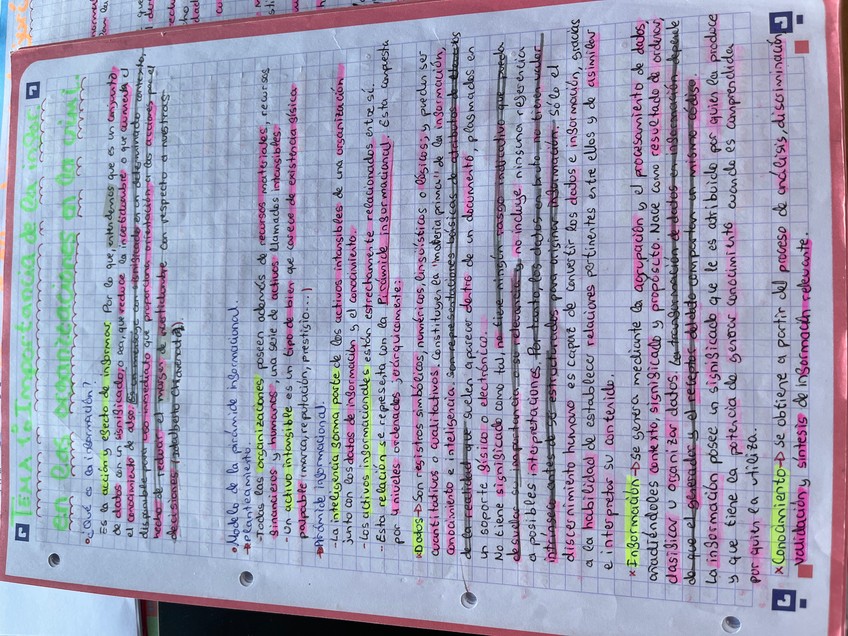 TEMA 1: Importancia de la infor.
en las organizaciones en la univ.
• ¿Qué es la información?
Es la acción y efecto de informar. Por lo que, entendemos que es un conjunto
de datos con un significado, o sea, que reduce la incertidumbre o que aumenta el
conocimiento de algo. Es un mensaje con significado en un determinado contexto,
disponible para uso inmediato y que proporciona orientación en las acciones por el
hecho de reducir el margen de incertidumbre con respecto a nuestras
decisiones (Idalberto Chiavenato).
• Modelo de la pirámide informacional.
→ Planteamiento.
- Todas las organizaciones poseen además de recursos materiales, recursos
financieros y humanos, una serie de activos llamados intangibles.
- Un activo intangible es un tipo de bien que carece de existencia física
palpable (marca, reputación, prestigio...)
→ Pirámide informacional.
- La inteligencia forma parte de los activos intangibles de una organización
junto con los datos de información y el conocimiento.
- Los activos informacionales están estrechamente relacionados entre sí.
- Esta relación se representa con la Pirámide informacional. Está compuesta
por 4 niveles ordenados jerárquicamente:
× Datos → Son registros simbólicos, numéricos, linguísticos o lógicos, y pueden ser
cuantitativos o cualitativos. Constituyen la "materia prima" de la información,
conocimiento e inteligencia. Son representaciones básicas de atributos de
de la realidad que suelen aparecer dentro de un documento, plasmados en
un soporte físico o electrónico.
No tiene significado como tal, no tiene ningún rasgo indicativo que pueda
su importancia o relevancia, y no incluye ninguna referencia
a posibles interpretaciones. Por tanto, los datos en bruto no tienen valor
intrínseco antes de ser información. Sólo el
discernimiento humano es capaz de convertir los datos e información, gracias
a la habilidad de establecer relaciones pertinentes entre ellos y de asimilar
e interpretar su contenido.
× Información → Se genera mediante la agrupación y el procesamiento de datos,
añadiéndoles contexto, significado y propósito. Nace como resultado de ordenar,
clasificar u organizar datos. La transformación de datos en información depende
de que el generador y el receptor del dato compartan un mismo código.
La información posee un significado que le es atribuido por quien la produce
y que tiene la potencia de generar conocimiento cuando es comprendida
por quien la utiliza.
× Conocimiento → Se obtiene a partir del proceso de análisis, discriminación,
validación y síntesis de información relevante.